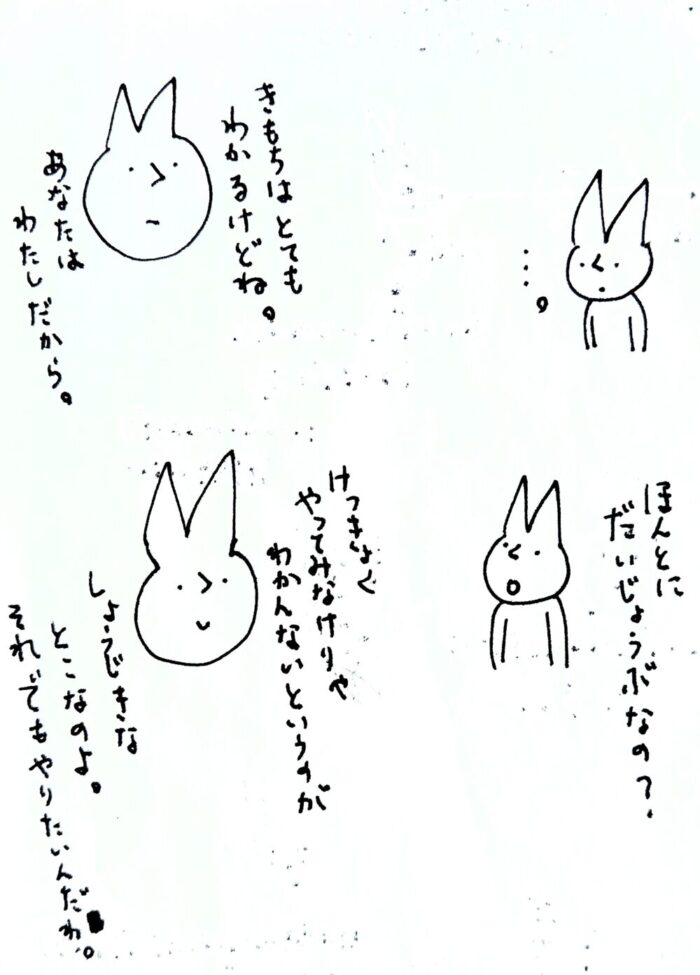 …。
きもちはとても
わかるけどね。
あなたは
わたしだから。
ほんとに
だいじょうぶなの？
けっきょく
やってみなけりゃ
わかんないというのが
しょうじきな
とこなのよ。
それでもやりたいんだわ。